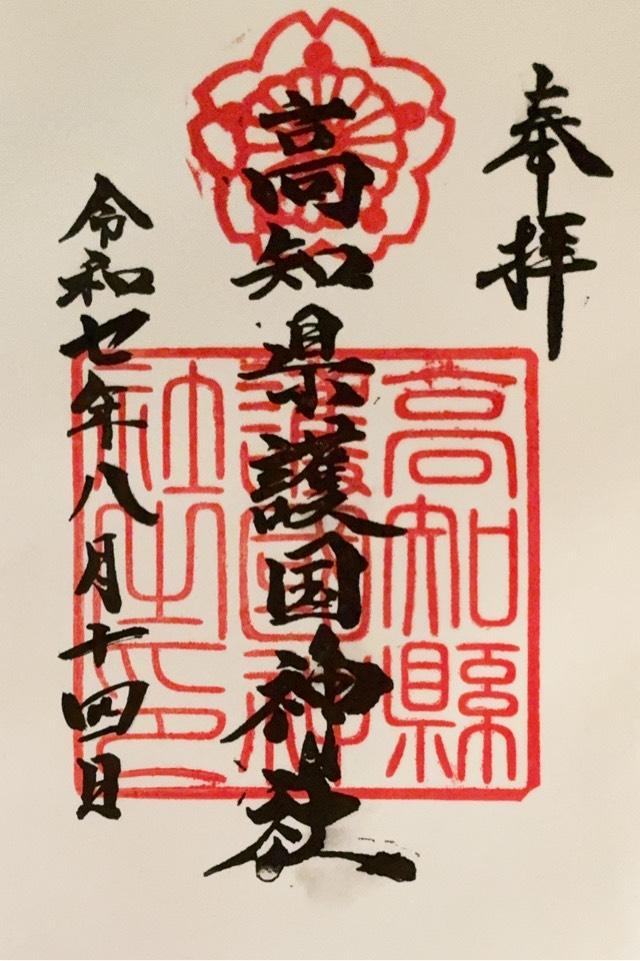 奉拝
高知県護国神社
令和七年八月十四日
高知縣
護国神
社之印